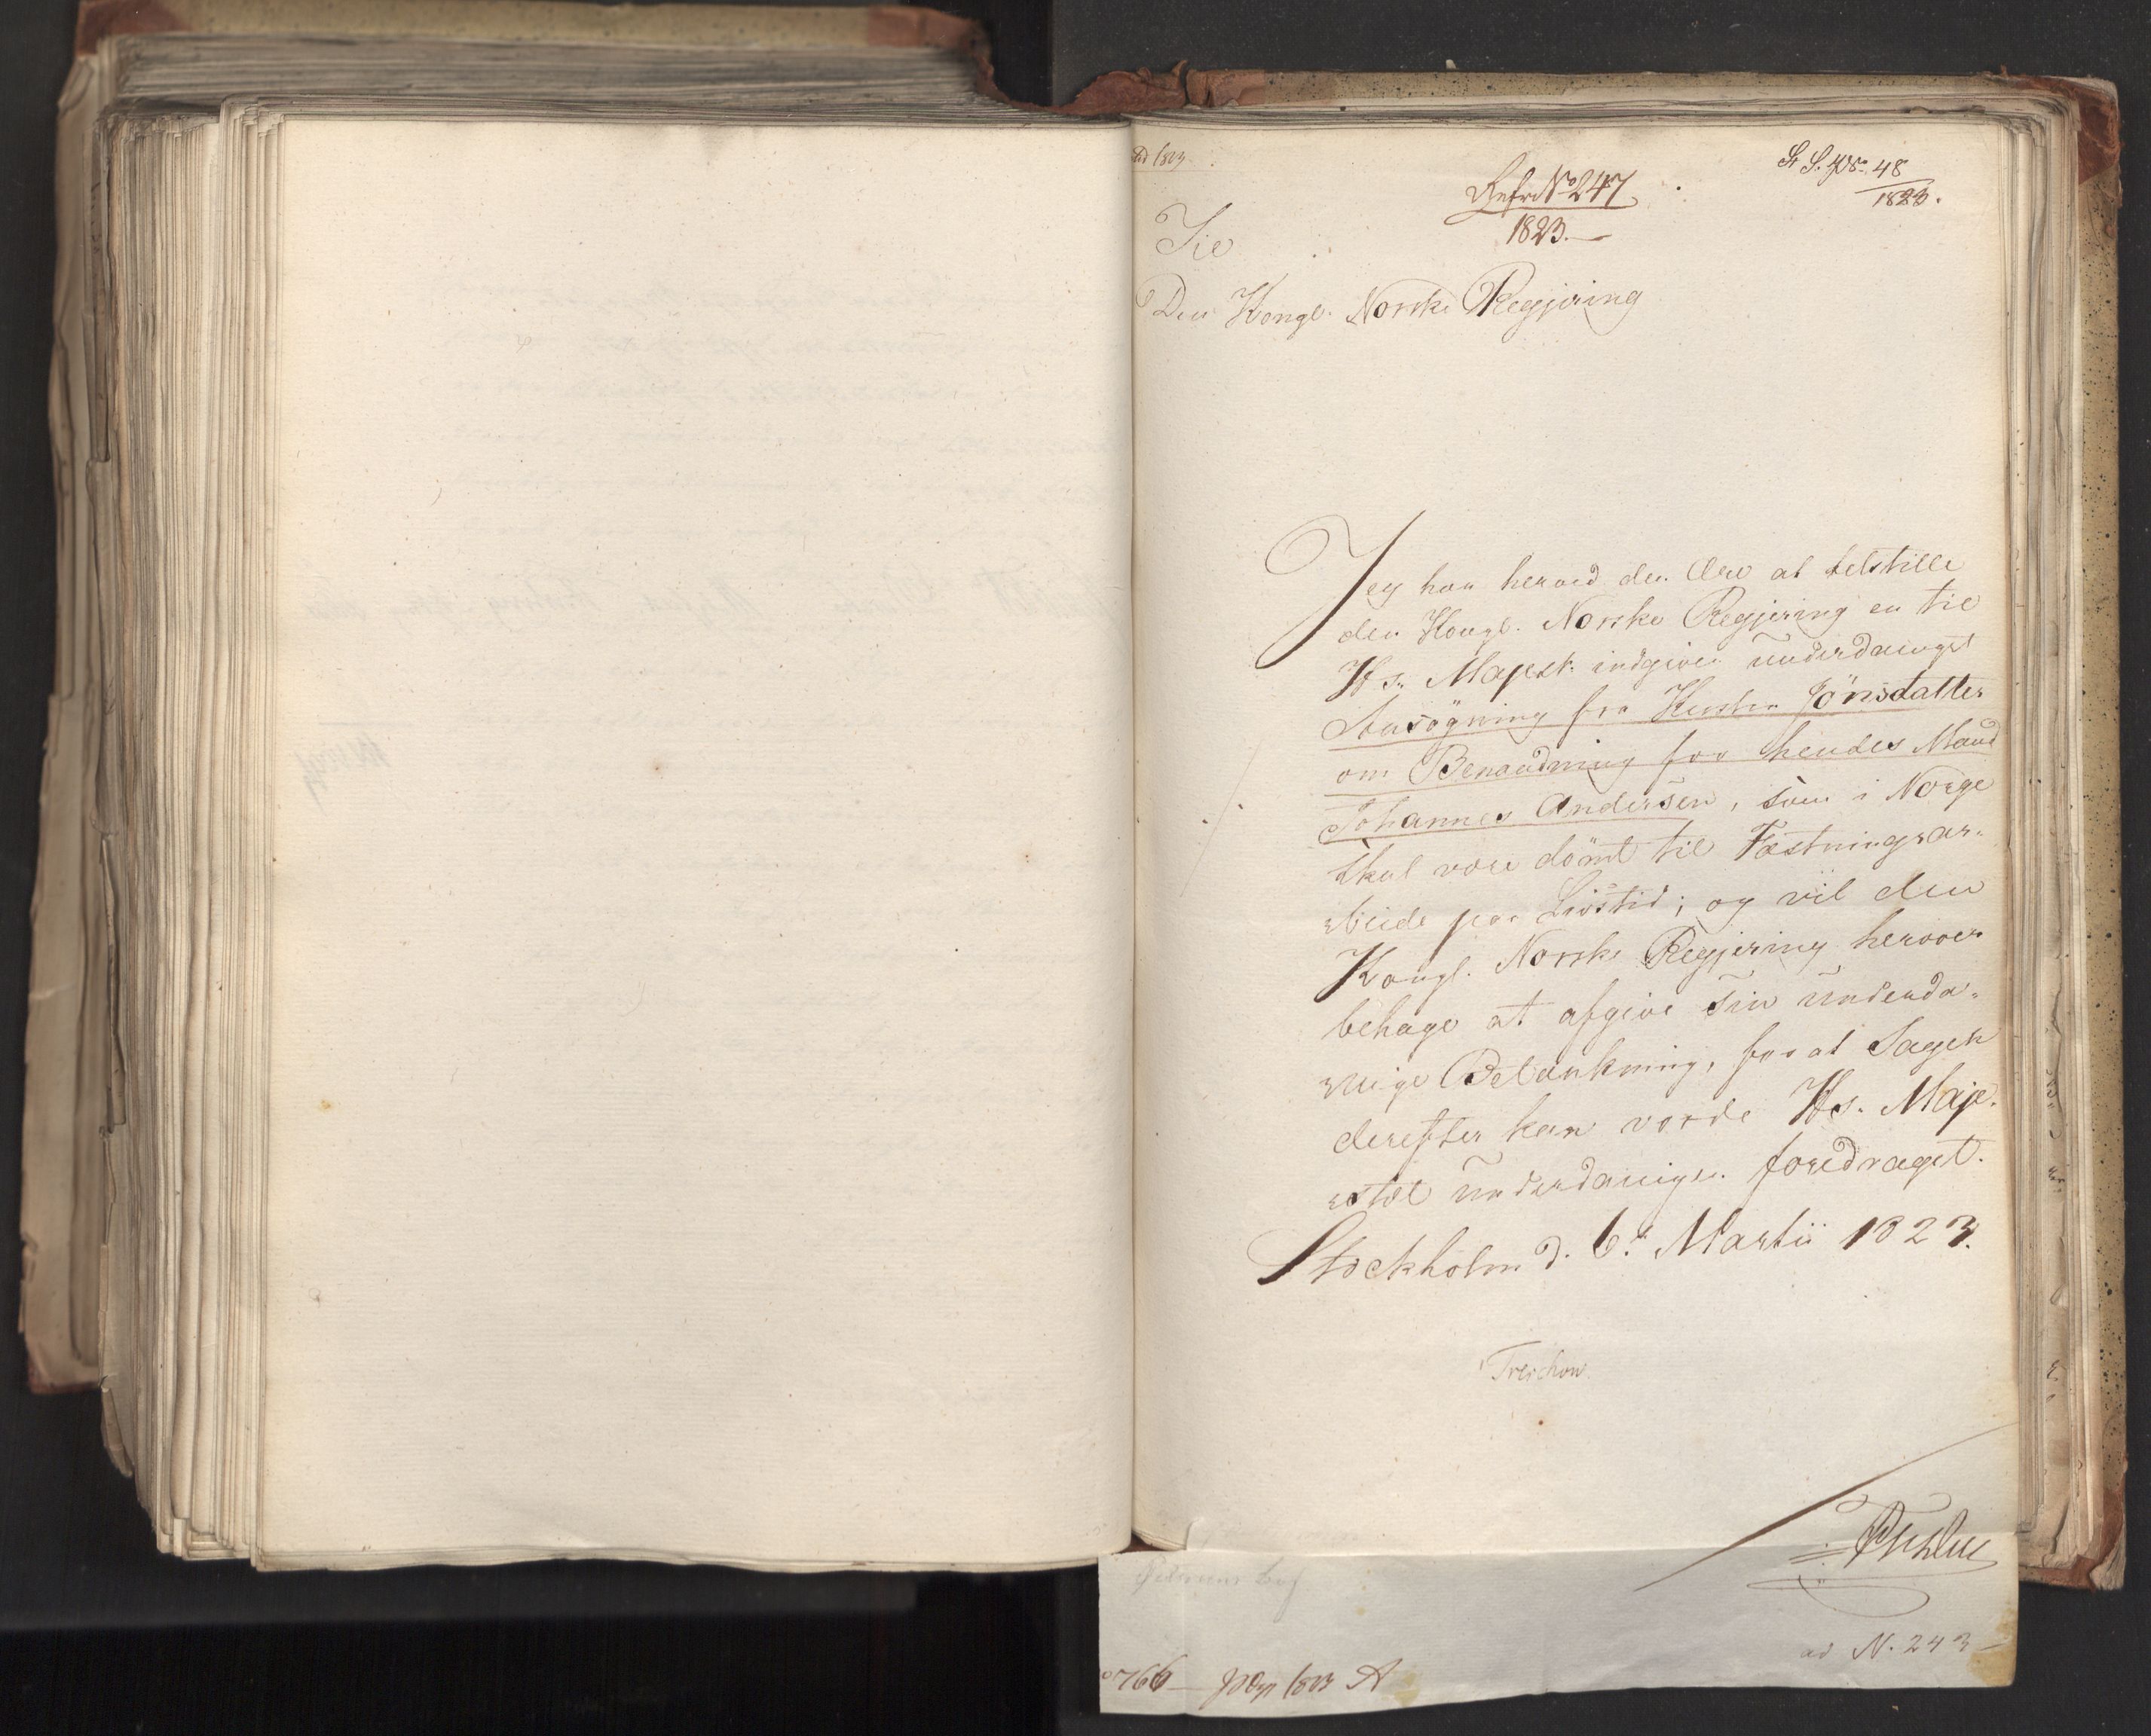 Refer. No 247
1823.
St. S. No. 48
1823.
Til
Den Kongl. Norske Regjering
Jeg har herved den Ære at tilstille
den Kongl. Norske Regjering en til
Hs. Majest. indgiven underdanigst
Ansögning fra Kerstin Jönsdatter
om Benaadning for hendes Mand
Johannes Andersen, som i Norge
skal være dömt til Fæstningsar-
beide paa Livstid; og vil den
Kongl. Norske Regjering herover
behage at afgive sin underda-
nige Betænkning, for at Sagen
derefter kan vorde Hs. Maje-
stæt underdanigen foredraget.
Stockholm d. 6. Martii 1823.
Treschow
ad N. 243
766 1823 A